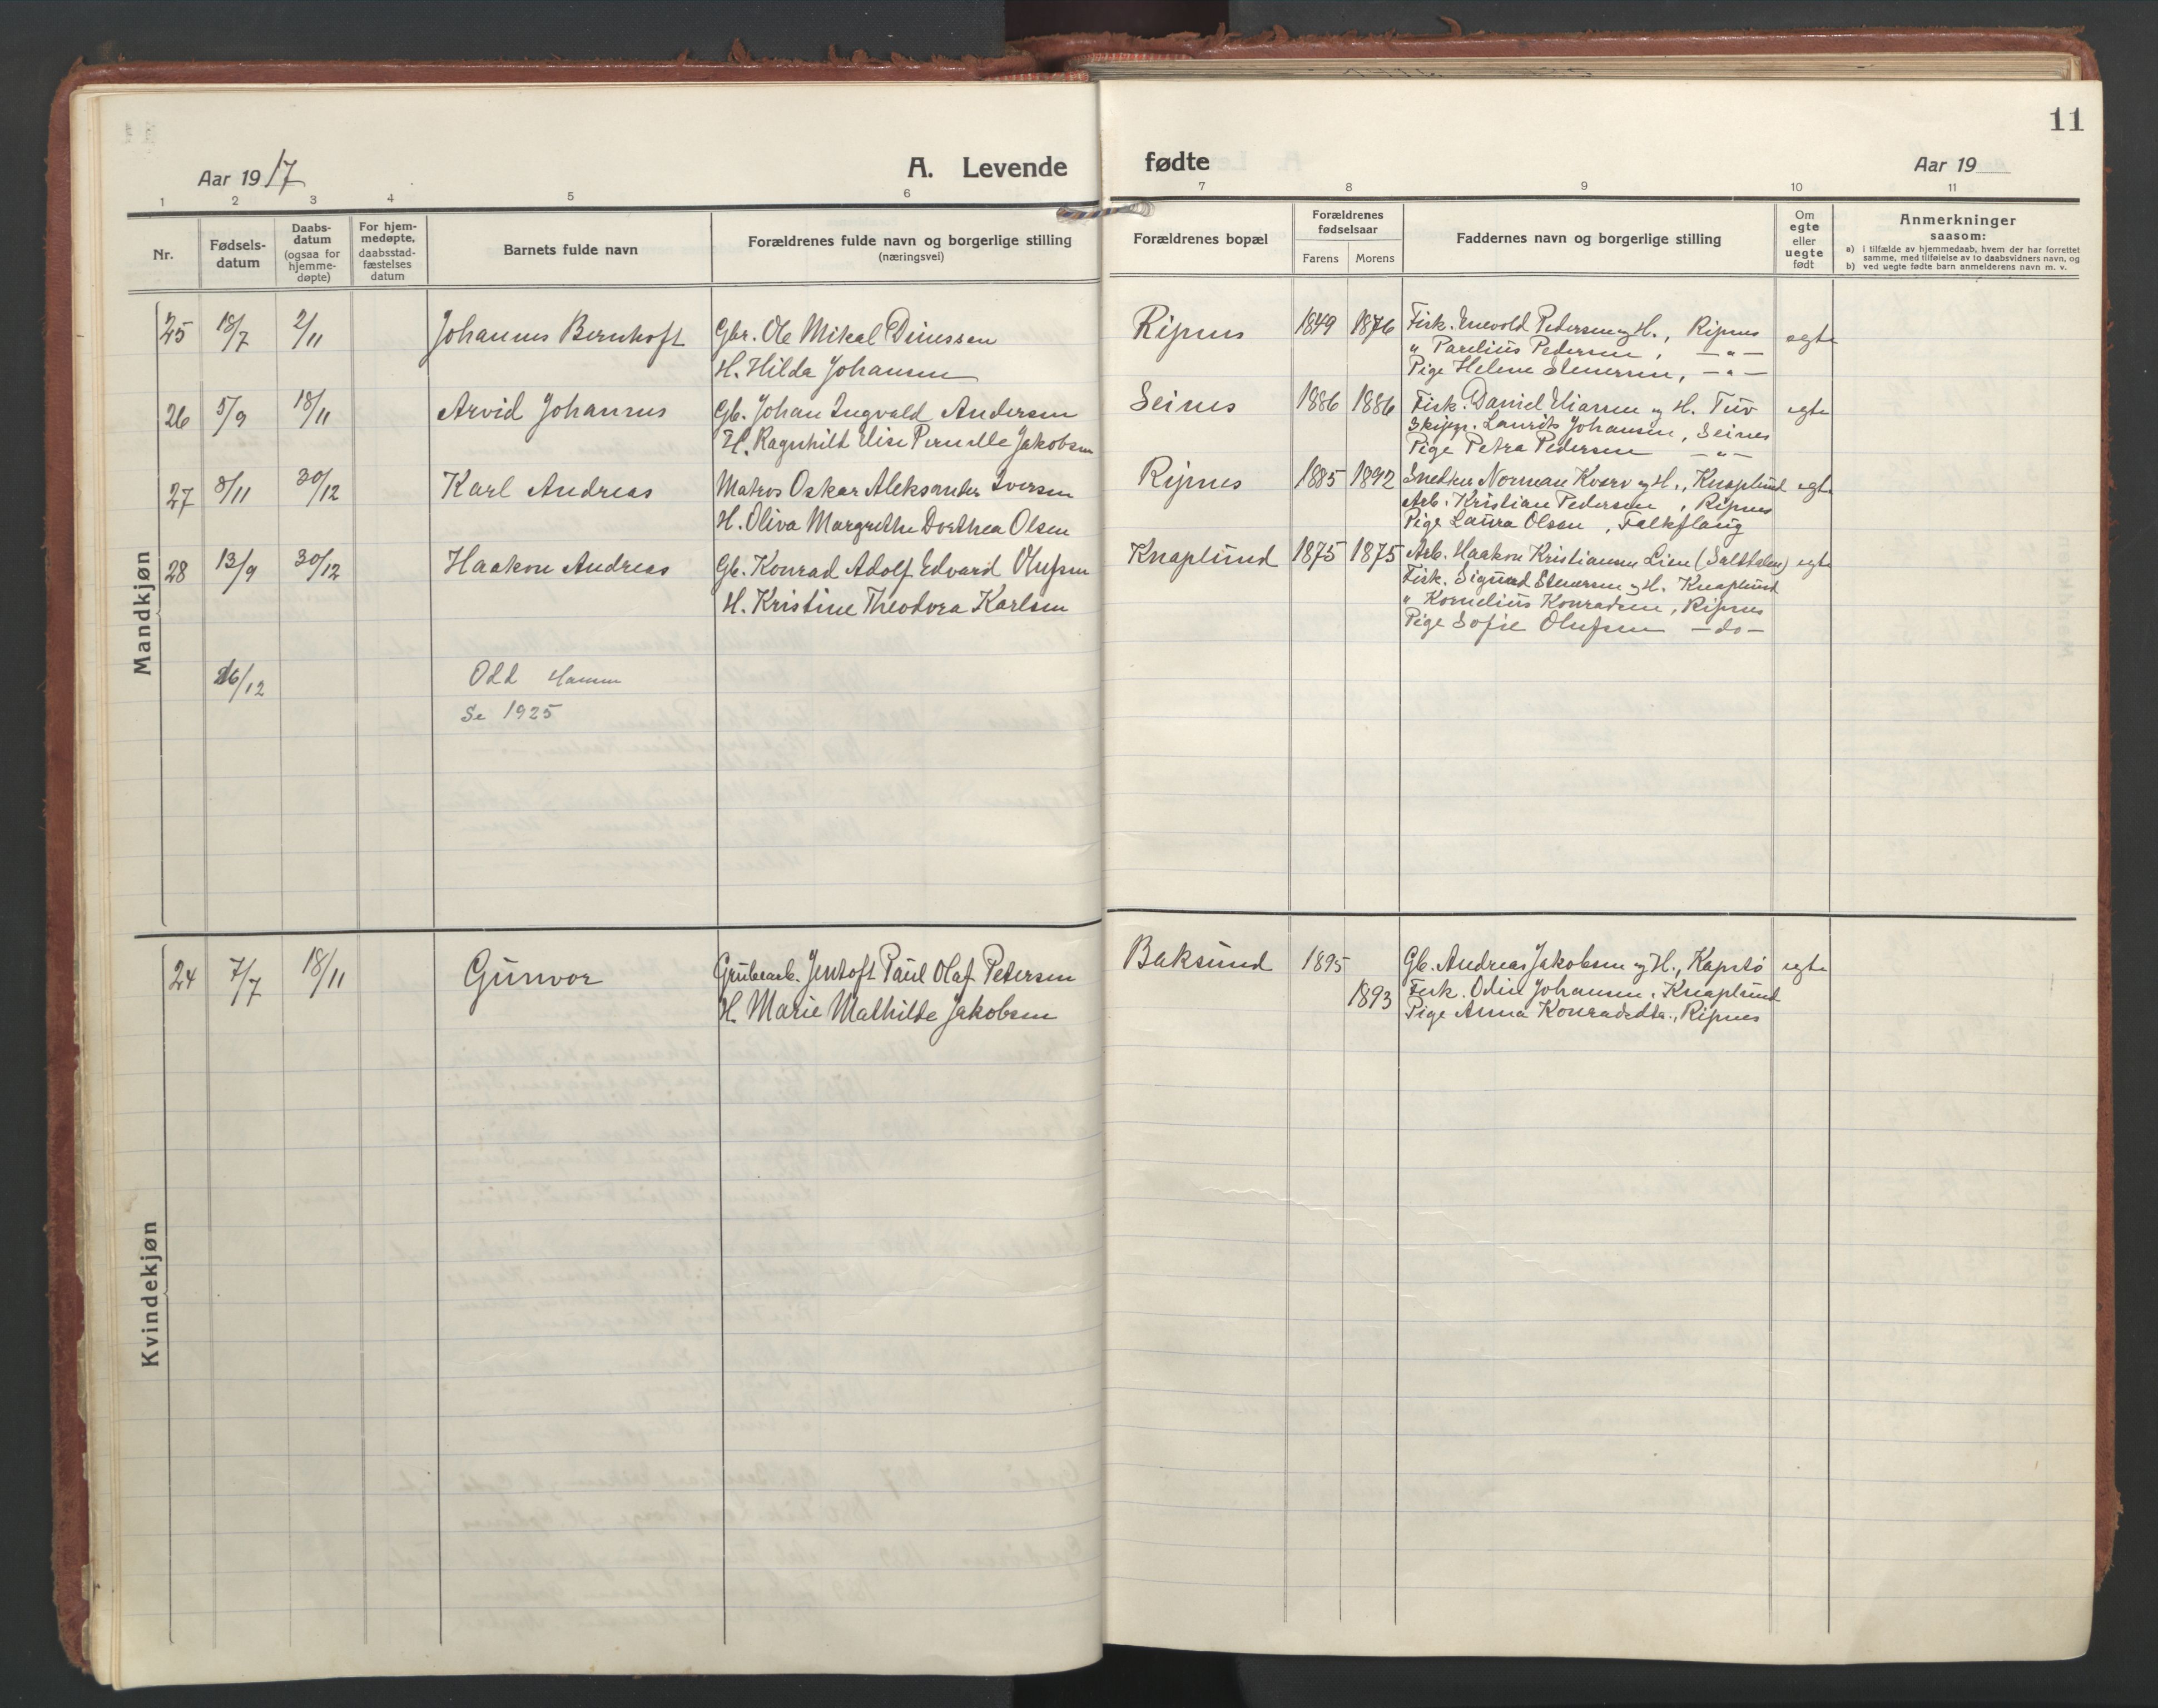 11
Aar 1917
A. Levende fødte
Aar 19
1 2 3 4 5 6 7 8 9 10 11
Nr.
Fødselsdatum
Daabsdatum (ogsaa for hjemmedøpte)
For hjemmedøpte, daabsstadfæstelses datum
Barnets fulde navn
Forældrenes fulde navn og borgerlige stilling (næringsvei)
Forældrenes bopæl
Forældrenes fødselsaar
Farens Morens
Faddernes navn og borgerlige stilling
Om egte eller uegte født
Anmerkninger saasom:
a) i tilfælde av hjemmedaab, hvem der har forrettet samme, med tilføielse av to daabsvidners navn, og
b) ved uegte fødte barn anmelderens navn m. v.
Mandkjøn
25 18/7 2/11 Johannes Bernhoft Gbr. Ole Mikal Dinessen Ripnes 1849 1876 Fisk. Enevold Pedersen og H., Ripnes egte
H. Hilda Johansen " Parelius Pedersen, — " —
Pige Helene Stenersen, — " —
26 5/9 18/11 Arvid Johannes Gb. Johan Ingvald Andersen Seines 1886 1886 Fisk. Daniel Eliassen og H. Tuv egte
H. Ragnhild Elise Pernelle Jakobsen Skipper. Laurits Johansen, Seines
Pige Petra Pedersen — " —
27 8/11 30/12 Karl Andreas Matros Oskar Aleksander Iversen Ripnes 1885 1892 Snedker Norman Kverv og H., Knaplund egte
H. Oliva Margrethe Dorthea Olsen Arb. Kristian Pedersen, Ripnes
Pige Laura Olsen, Falkflaug
28 13/9 30/12 Haakon Andreas Gb. Konrad Adolf Edvard Olufsen Knaplund 1875 1875 Arb. Haakon Kristiansen Lien (Saltdalen) egte
H. Kristine Theodora Karlsen Fisk. Sigurd Stenersen og H. Knaplund
" Kornelius Konradsen, Ripnes
Pige Sofie Olufsen — do —
26/12 Odd Hamm
Se 1925
Kvindekjøn
24 7/7 18/11 Gunvor Grubearb. Jentoft Paul Olaf Petersen Baksund 1895 Gb. Andreas Jakobsen og H., Kapstø egte
H. Marie Mathilde Jakobsen 1893 Fisk. Odin Johansen, Knaplund
Pige Anna Konradsdtr., Ripnes